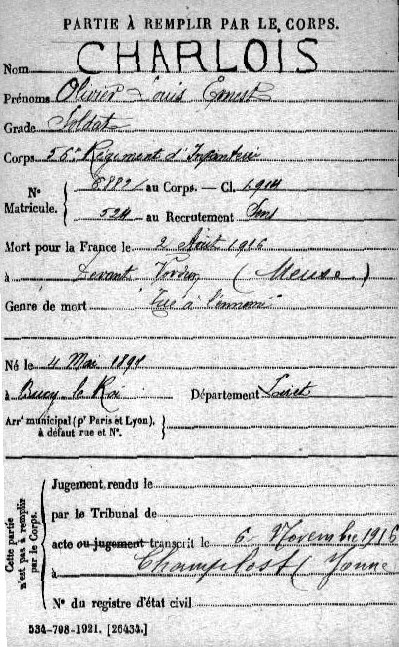 PARTIE À REMPLIR PAR LE CORPS.
Nom CHARLOIS
Prénoms Olivier Louis Ernest
Grade Soldat
Corps 56e Régiment d'Infanterie
N° Matricule. { 8882 au Corps. — Cl. 1914
524 au Recrutement Sens
Mort pour la France le 2 Août 1916
à Devant Verdun (Meuse)
Genre de mort "Tué à l'ennemi"
Né le 4 Mai 1894
à Bucy le Roi Département Loiret
Arrt municipal (pr Paris et Lyon),
à défaut rue et N°.
Cette partie n'est pas à remplir par le Corps.
Jugement rendu le
par le Tribunal de
acte ou jugement transcrit le 6 Novembre 1916
à Champlost Yonne
N° du registre d'état civil
534-708-1921. [26434.]